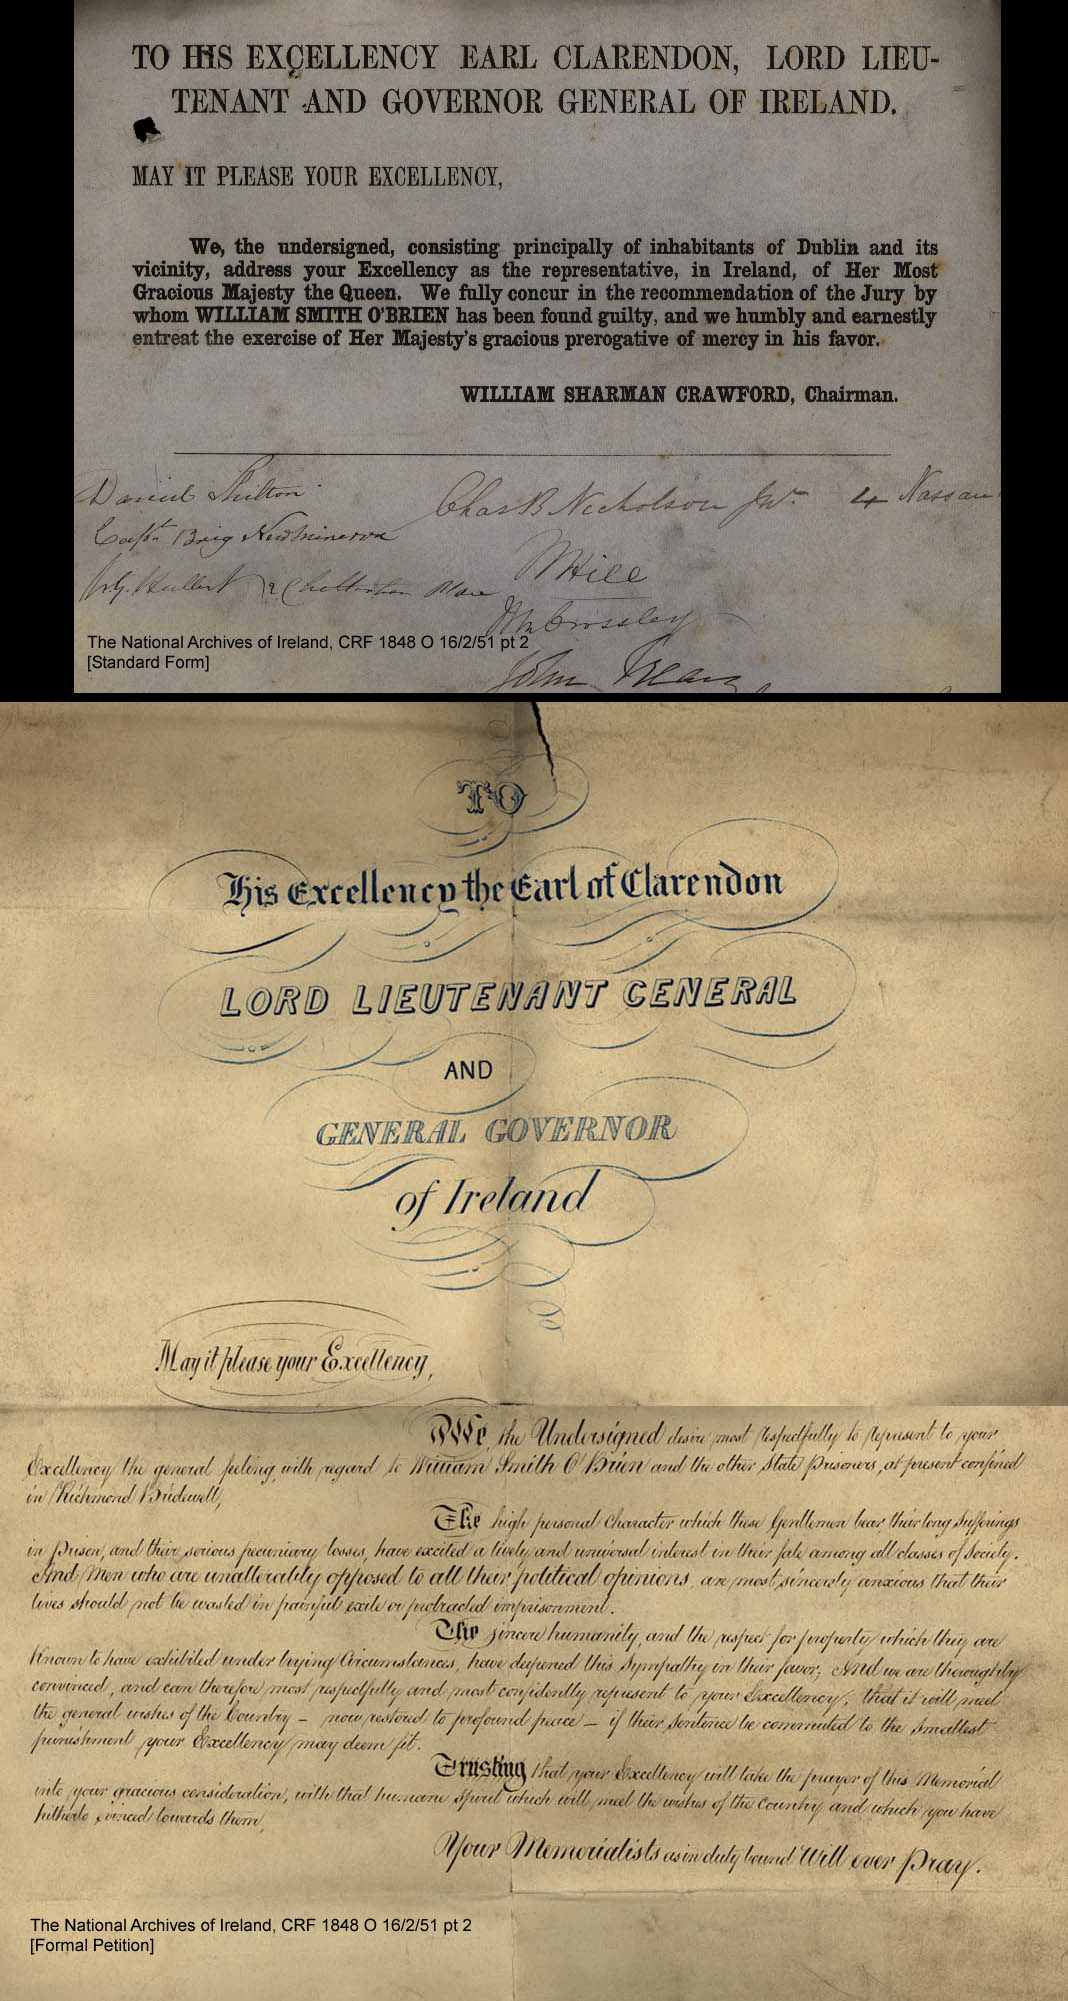 TO HIS EXCELLENCY EARL CLARENDON, LORD LIEU-
TENANT AND GOVERNOR GENERAL OF IRELAND.
MAY IT PLEASE YOUR EXCELLENCY,
We, the undersigned, consisting principally of inhabitants of Dublin and its
vicinity, address your Excellency as the representative, in Ireland, of Her Most
Gracious Majesty the Queen. We fully concur in the recommendation of the Jury by
whom WILLIAM SMITH O'BRIEN has been found guilty, and we humbly and earnestly
entreat the exercise of Her Majesty's gracious prerogative of mercy in his favor.
WILLIAM SHARMAN CRAWFORD, Chairman.
Daniel Shilton
Chas B Nicholson Jnr 4 Nassau
Captn Brig New Minerva
W Hill
Wm Crossley
The National Archives of Ireland, CRF 1848 O 16/2/51 pt 2
[Standard Form]
John
TO
His Excellency the Earl of Clarendon
LORD LIEUTENANT GENERAL
AND
GENERAL GOVERNOR
of Ireland
May it please your Excellency,
We, the Undersigned desire most respectfully to represent to your
Excellency the general feeling, with regard to William Smith O'Brien and the other State Prisoners, at present confined
in Richmond Bridewell,
The high personal character which these Gentlemen bear their long sufferings
in Prison, and their serious pecuniary losses, have excited a lively and universal interest in their fate among all classes of Society.
And Men who are unalterably opposed to all their political opinions, are most sincerely anxious that their
lives should not be wasted in painful exile or protracted imprisonment.
The sincere humanity, and the respect for property which they are
Known to have exhibited under trying Circumstances, have deepened this Sympathy in their favor; And we are thoroughly
convinced, and can therefore most respectfully and most confidently represent to your Excellency, that it will meet
the general wishes of the Country – now restored to profound peace – if their Sentence be commuted to the Smallest
punishment your Excellency may deem fit.
Trusting that your Excellency will take the prayer of this Memorial
into your gracious consideration, with that humane Spirit which will meet the wishes of the Country and which you have
hitherto evinced towards them,
Your Memorialists as in duty bound Will ever Pray.
The National Archives of Ireland, CRF 1848 O 16/2/51 pt 2
[Formal Petition]